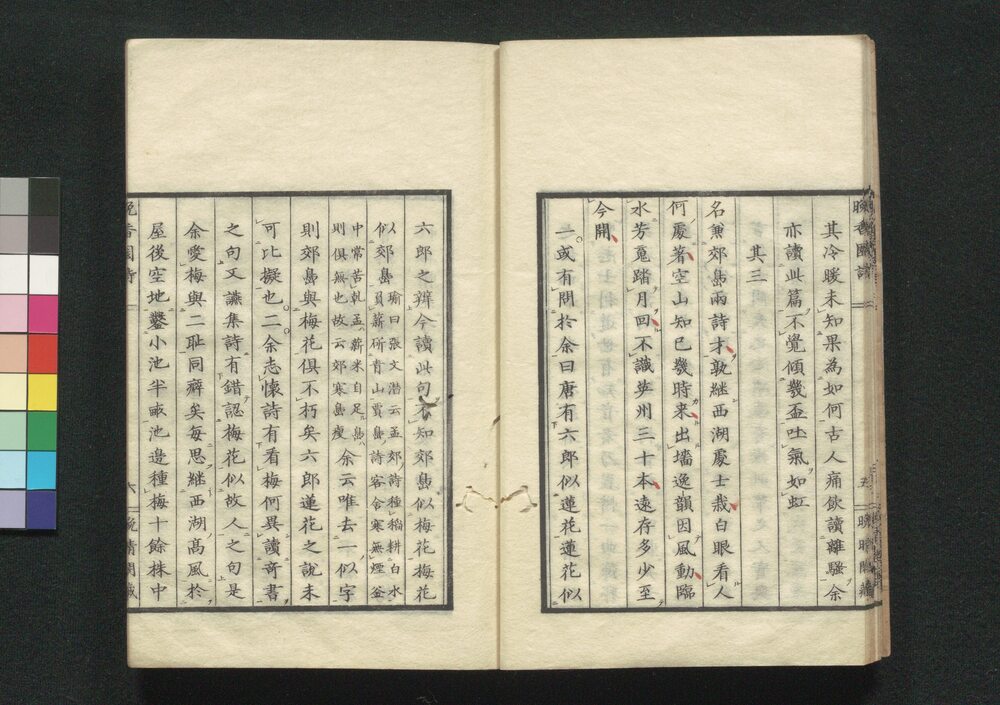 其冷暖未知果為如何古人痛飲讀離騷余
亦讀此篇不覺傾幾盃吐氣如虹
其三
名兼郊島兩詩才孰繼西湖處士哉白眼看人
何處著空山知己幾時来出墻逸韻因風動臨
水芳魂踏月回不識英州三十本遠存多少至
今開
一或有問於余曰唐有六郎似蓮花蓮花似
六郎之辨今讀此句不知郊島似梅花梅花
似郊島瑜曰張文潜云孟郊詩種稲耕白水
負薪斫青山賈島詩客舍寒無煙釜
中常苦乾孟薪米自足島
則俱無也故云郊寒島瘦余云唯去一似字
則郊島與梅花俱不朽矣六郎蓮花之說未
可比擬也二余志懷詩有看梅何異讀奇書
之句又讌集詩有錯認梅花似故人之句是
余愛梅與二耻同癖矣每思繼西湖高風於
屋後空地鑿小池半畝池邉種梅十餘株中
晚香園詩
六
晚晴閣藏